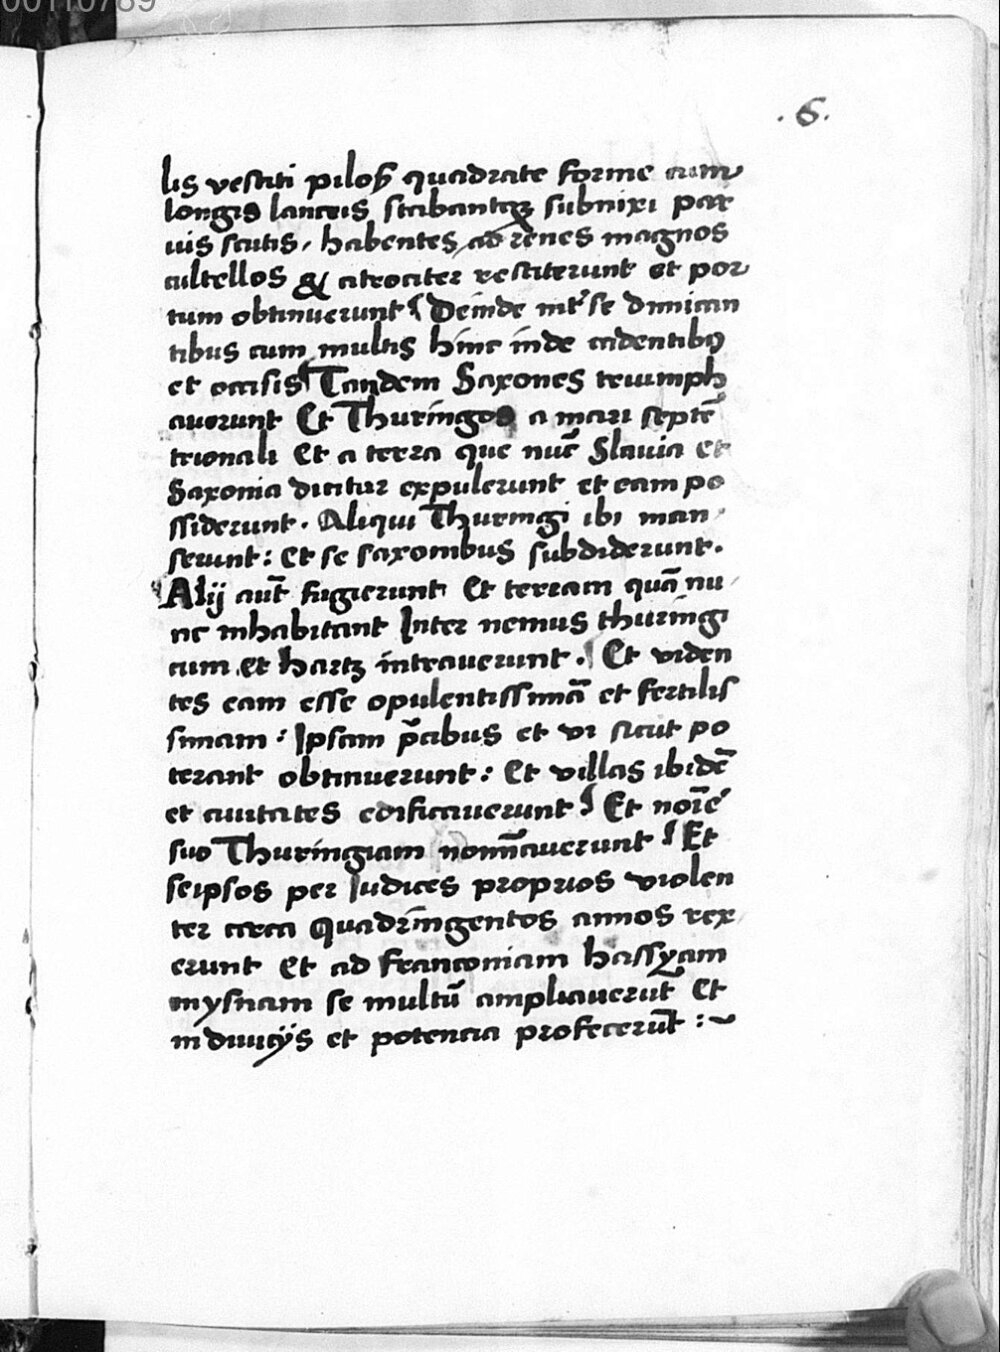 00110789
.6.
lis vestiti pilosꝭ quadrate forme cum
longis lanceis stabantqꝫ subnixi par
uis scutis, habentes ad renes magnos
cultellos & atrociter restiterunt et por
tum obtinuerunt Deinde int̛ se dimican
tibus cum multis hinc inde cadentibꝰ
et occisis Tandem Saxones triumph
auerunt Et Thuringos a mari septē
trionali Et a terra que nūc Slauia et
Saxonia dicitur expulerunt et eam po
ssiderunt. Aliqui Thuringi ibi man
serunt: Et se saxonibus subdiderunt.
Alij aut̄ fugierunt Et terram quā nu
nc inhabitant Inter nemus thuringi
cum et hartz intrauerunt. Et viden
tes eam esse opulentissimā et fertilis
simam: Ipsam p̄cibus et vi sicut po
terant obtinuerunt: Et villas ibidē
et ciuitates edificauerunt Et noīe
suo Thuringiam nomīauerunt Et
seipsos per Iudices proprios violen
ter circa Quadringentos annos rex
erunt Et ad franconiam hassyam
mysnam se multū ampliauerūt Et
in diuicijs et potencia profecerūt :~